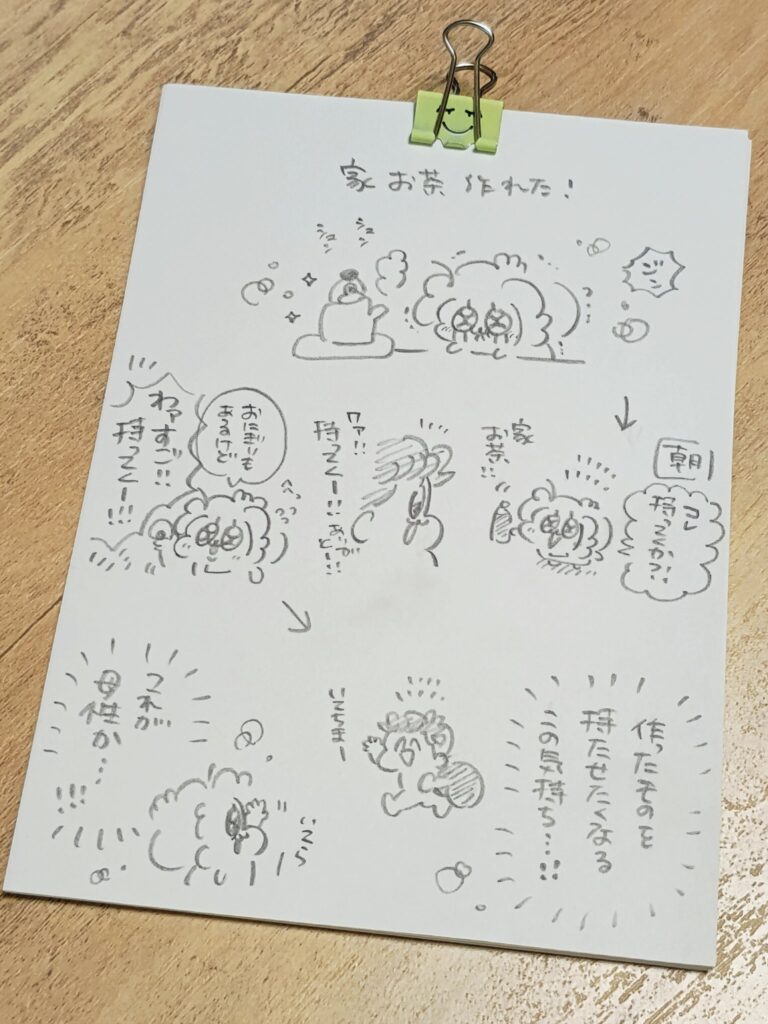 家 お茶 作れた!
シュン
シュン
ジン
朝
コレ
持ってくか?!
家
お茶!!
ワァ!!
持ってくー!!
ありがとー!!
おにぎりも
あるけど
わァすご!!
持ってくー!!!
作ったものを
持たせたくなる
この気持ち…!!
いてちまー
いてら
これが
母性か…!!!